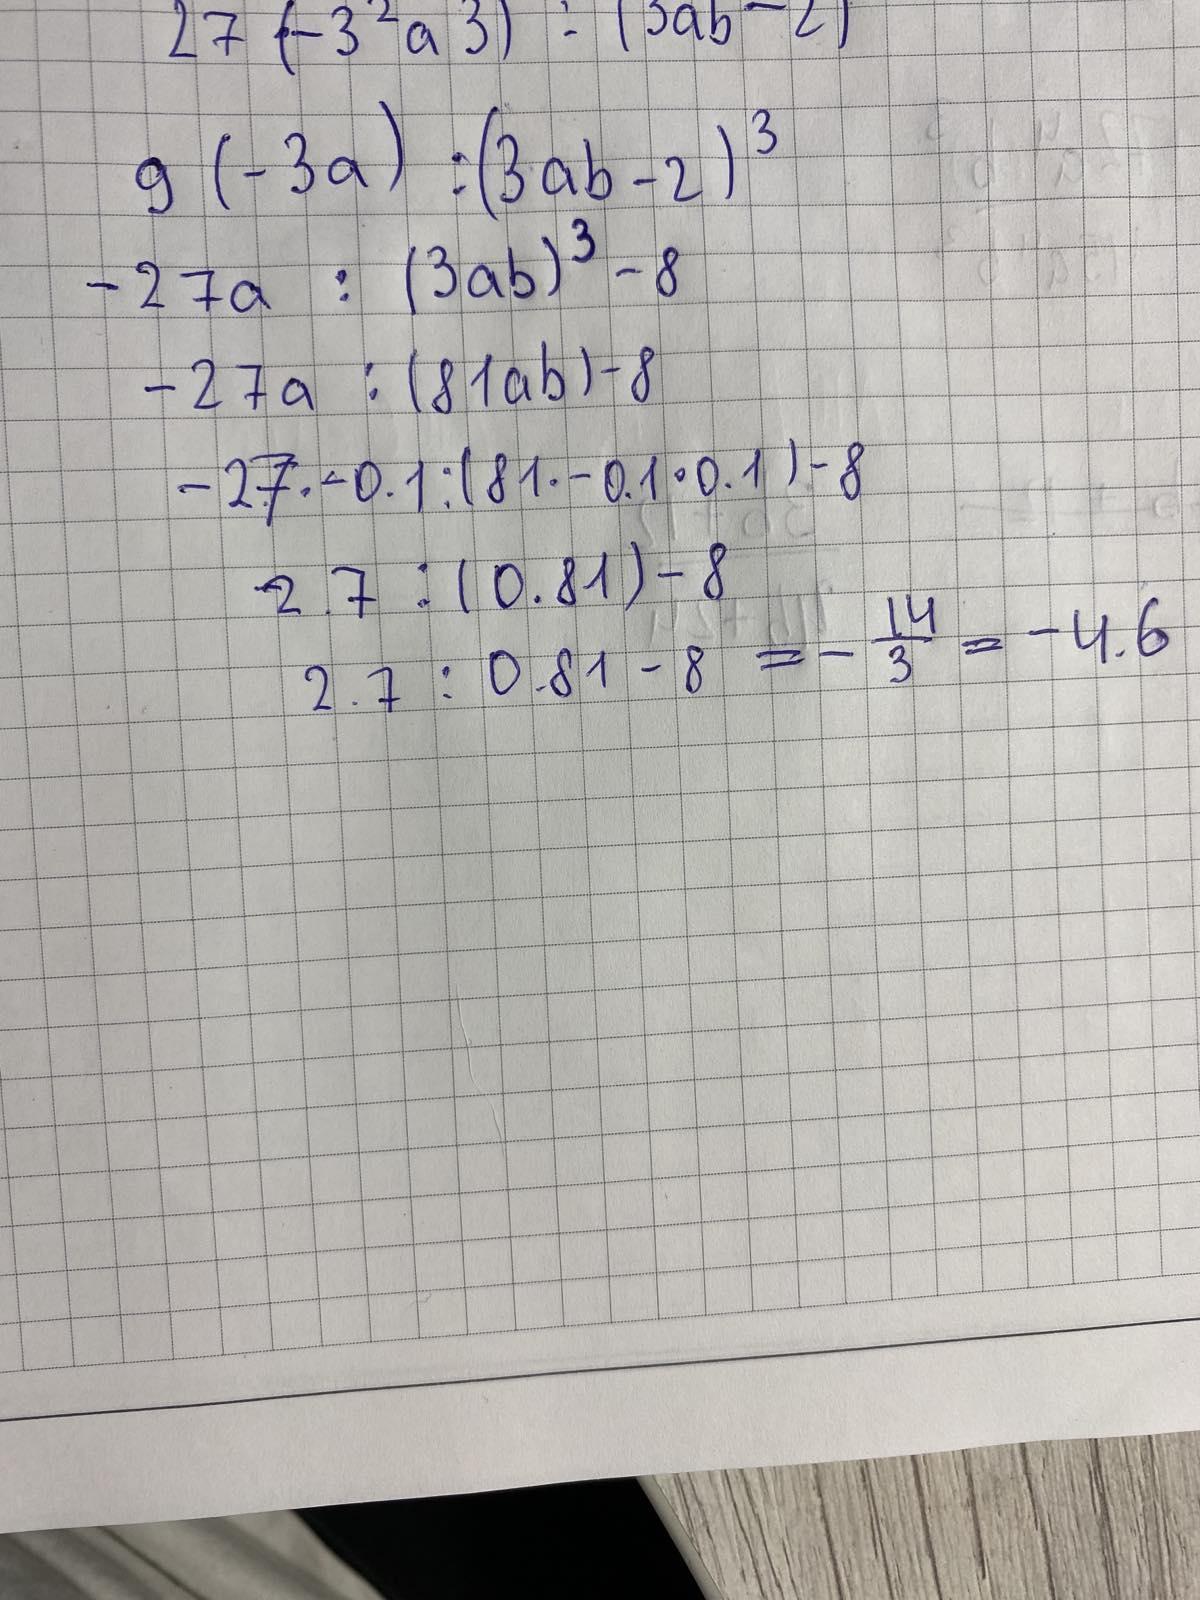 27 (-3²a3) : (3ab-2)
9 (-3a) :(3ab-2)³
-27a : (3ab)³-8
-27a : (81ab)-8
-27.-0.1:(81.-0.1•0.1)-8
2.7 : (0.81)-8
2.7 : 0.81-8 = -14/3 = -4.6